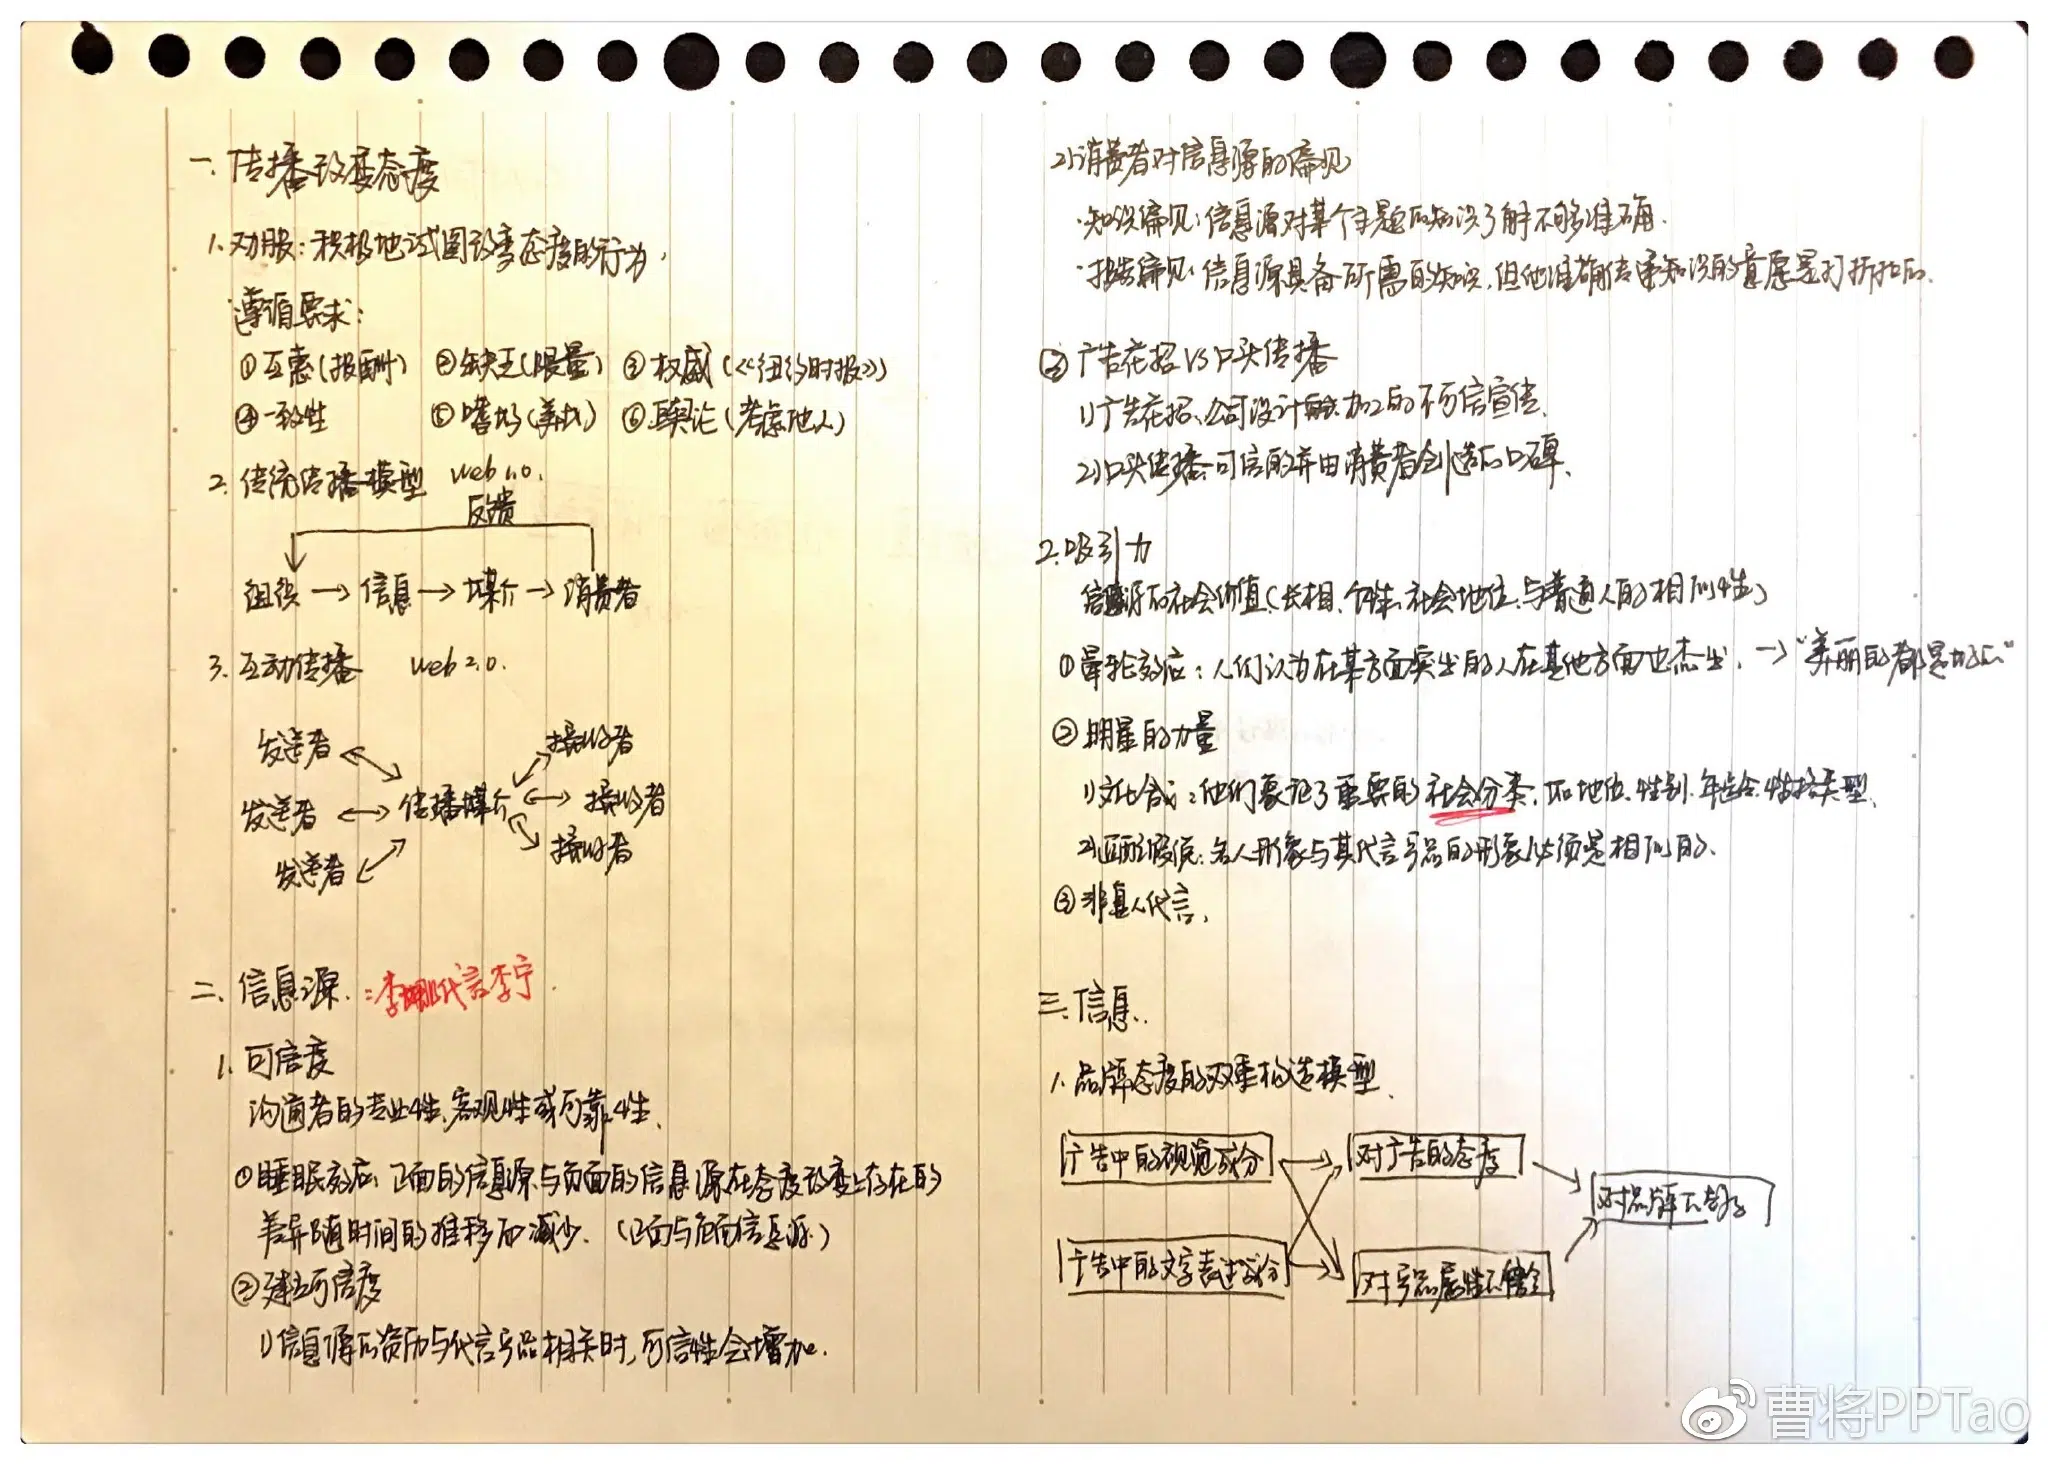 一.传播改变态度
1.劝服：积极地试图改变态度的行为,
遵循要求：
①互惠(报酬) ②缺乏(限量) ③权威(《纽约时报》)
④一致性 ⑤嗜好(美女) ⑥舆论(考虑他人)
2.传统传播模型 web 1.0.
反馈
组织→信息→媒介→消费者
3.互动传播 web 2.0.
发送者 接收者
发送者 传播媒介 接收者
发送者 接收者
二、信息源.：李娜代言李宁.
1.可信度
沟通者的专业性、客观性或可靠性.
①睡眠效应：正面的信息源与负面的信息源在态度改变上存在的
差异随时间的推移而减少.(正面与负面信息源)
②建立可信度
1)信息源的资历与代言产品相关时,可信性会增加.
2)消费者对信息源的偏见
·知识偏见:信息源对某个主题的知识了解不够准确.
·报告偏见:信息源具备所需的知识,但他准确传递知识的意愿是打折扣的.
③广告花招VS口头传播
1)广告花招:公司设计 加工的不可信宣传.
2)口头传播:可信的并由消费者创造的口碑.
2.吸引力
信息源的社会价值(长相、个性、社会地位、与普通人的相似性)
①晕轮效应：人们认为在某方面突出的人在其他方面也杰出.→"美丽的都是好的"
②明星的力量
1)文化含义:他们象征了重要的社会分类,如地位、性别、年龄、性格类型.
2)匹配假说:名人形象与其代言产品的形象必须是相似的.
③非真人代言.
三.信息.
1.品牌态度的双重构造模型.
广告中的视觉成分 对广告的态度
对品牌的态度
广告中的文字表述成分 对产品属性的信念
曹将PPTao